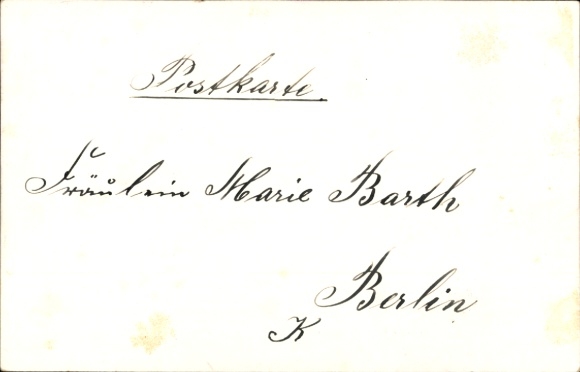 Postkarte.
Fräulein Marie Barth
Berlin
K